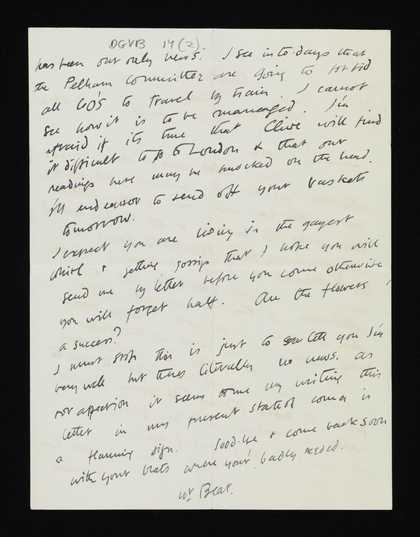 DGVB 14 (2).
has been our only news. I see in to days that
the Pelham Committee are going to forbid
all CO's to travel by train. I cannot
see how it is to be managed. I'm
afraid if its true that Clive will find
it difficult to go to London & that our
readings here may be knocked on the head.
I'll endeavor to send off your baskets
tomorrow.
I expect you are living in the gayest
whirl & getting gossip that I hope you will
send me by letter before you come otherwise
you will forget half. Are the flowers
a success?
I must stop this is just to tell you I'm
very well but theres literally no news. as
for affection it seems to me my writing this
letter in my present state of coma is
a flaming sign. Good-bye & come back soon
with your brats where your badly needed.
yr Bear.